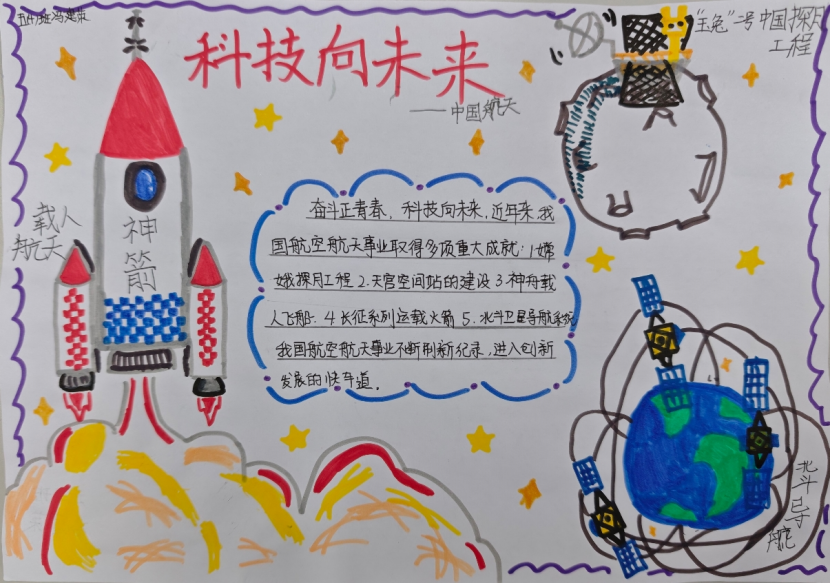 科技向未来
——中国航天
"玉兔"二号中国探月
工程
载人
航天
神
箭
奋斗正青春，科技向未来，近年来我
国航空航天事业取得多项重大成就：1嫦
娥探月工程 2.天宫空间站的建设 3.神舟载
人飞船. 4.长征系列运载火箭 5.北斗卫星导航系统
我国航空航天事业不断刷新纪录，进入创新
发展的快车道。
北斗导航